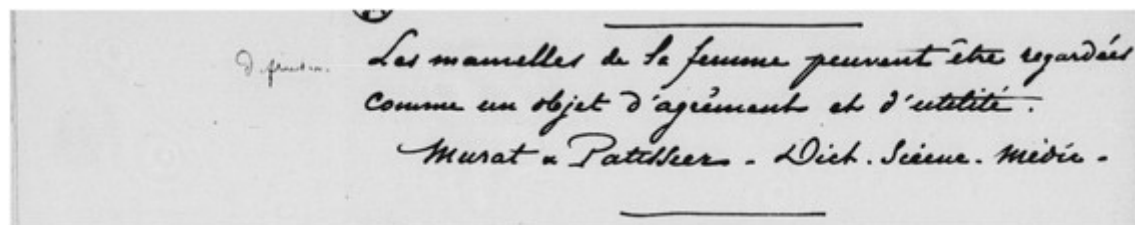 Les mamelles de la femme peuvent être regardées
comme un objet d'agrément et d'utilité.
Murat & Patissier - Dict. Scienc. Médic.